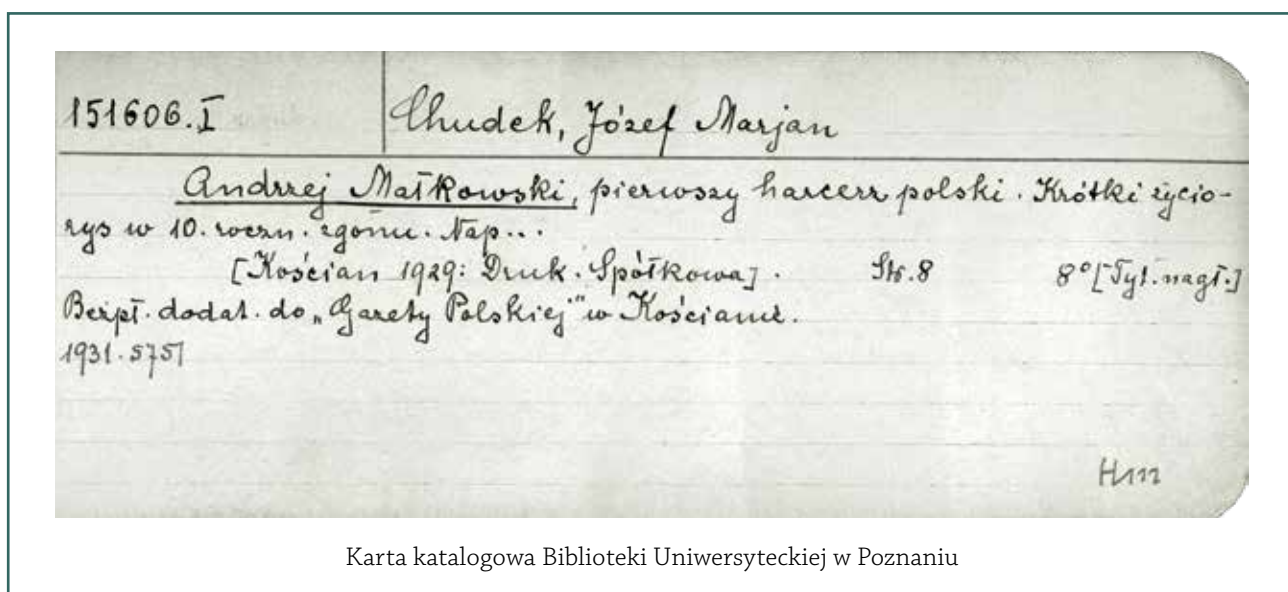 151606.I
Chudek, Józef Marjan
Andrzej Małkowski, pierwszy harcerz polski. Krótki życio-
rys w 10. roczn. zgonu. Nap...
[Kościan 1929: Druk. Spółkowa]. Str. 8 8° [Tyt. nagł.]
Bezpł. dodat. do „Gazety Polskiej" w Kościanie.
1931.5751
Karta katalogowa Biblioteki Uniwersyteckiej w Poznaniu